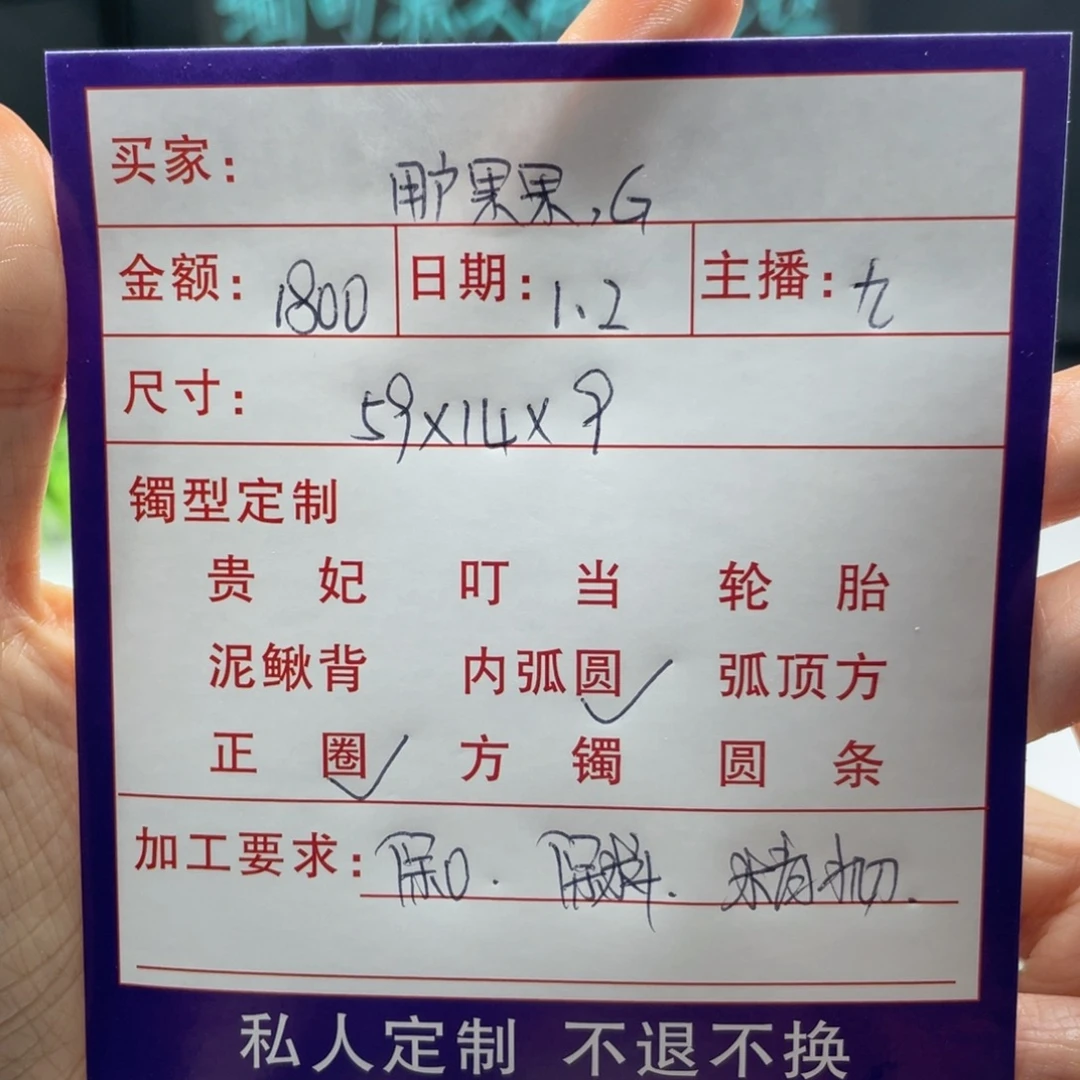 买家: 用户果果,G
金额: 1800 日期: 1、2 主播: 九
尺寸: 59x14x9
镯型定制
贵妃 叮当 轮胎
泥鳅背 内弧圆✓ 弧顶方
正圈✓ 方镯 圆条
加工要求: 保口. 保料. 精抛.
私人定制 不退不换